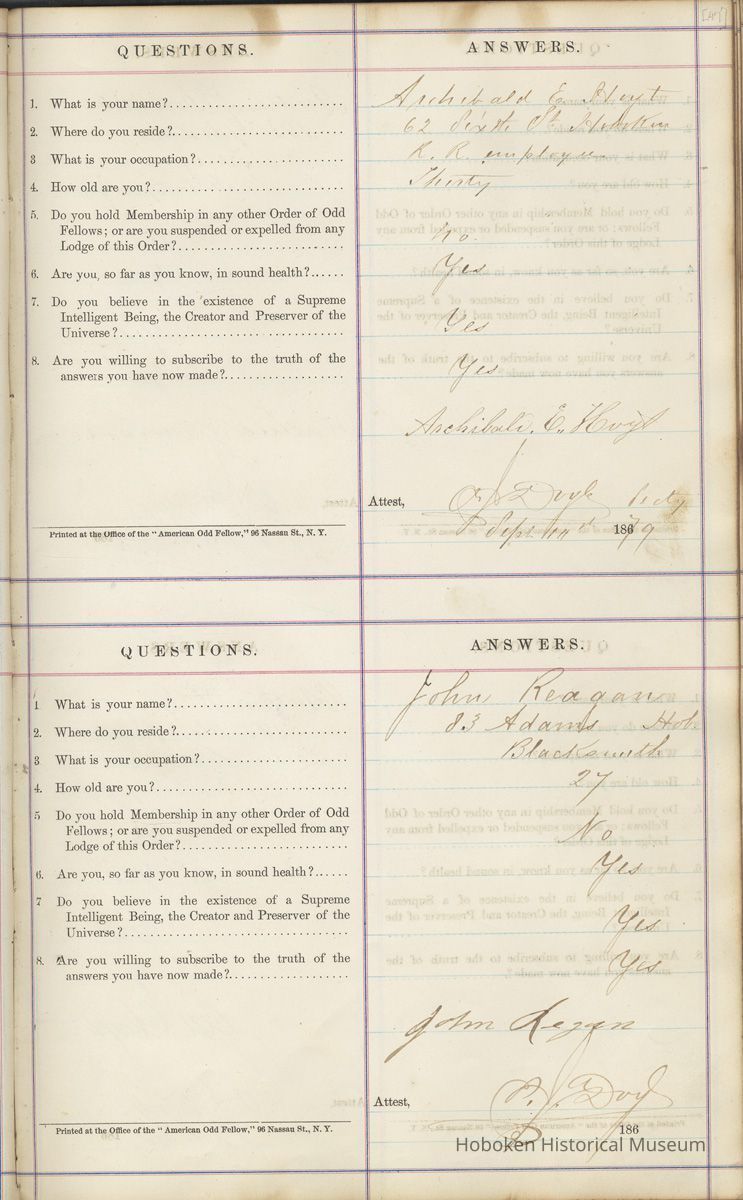 [47]
QUESTIONS.
ANSWERS.
1. What is your name?
Archibald E. Hoyt
2. Where do you reside?
62 Sixth St Hoboken
3 What is your occupation?
R. R. employee
4. How old are you?
Thirty
5. Do you hold Membership in any other Order of Odd
Fellows; or are you suspended or expelled from any
Lodge of this Order?
No.
6. Are you, so far as you know, in sound health?
Yes
7. Do you believe in the existence of a Supreme
Intelligent Being, the Creator and Preserver of the
Universe?
Yes
8. Are you willing to subscribe to the truth of the
answers you have now made?
Yes
Archibald. E. Hoyt
Attest,
Secty
Sept 186 79
Printed at the Office of the "American Odd Fellow," 96 Nassau St., N. Y.
QUESTIONS.
ANSWERS.
1 What is your name?
John Reagan
2. Where do you reside?
83 Adams Hob.
3 What is your occupation?
Blacksmith
4. How old are you?
27
5 Do you hold Membership in any other Order of Odd
Fellows; or are you suspended or expelled from any
Lodge of this Order?
No
6. Are you, so far as you know, in sound health?
Yes
7 Do you believe in the existence of a Supreme
Intelligent Being, the Creator and Preserver of the
Universe?
Yes
8. Are you willing to subscribe to the truth of the
answers you have now made?
Yes
John Regan
Attest,
186
Printed at the Office of the "American Odd Fellow," 96 Nassau St., N. Y.
Hoboken Historical Museum